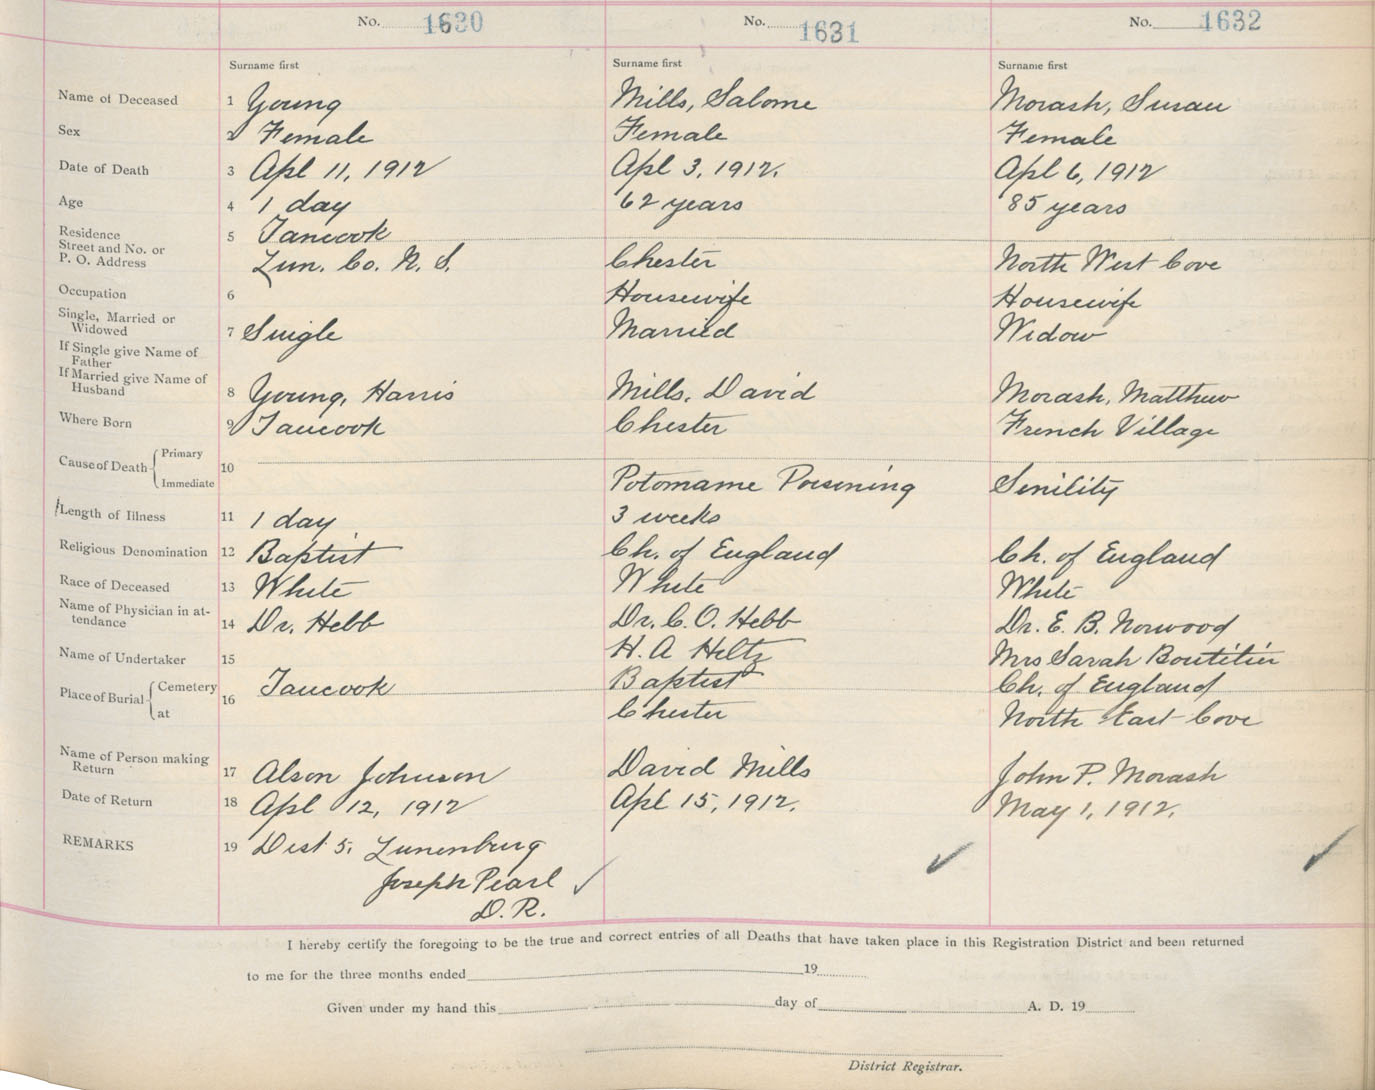 No. 1630 No. 1631 No. 1632
Surname first Surname first Surname first
Name of Deceased 1 Young Mills, Salome Morash, Susan
Sex 2 Female Female Female
Date of Death 3 Apl 11, 1912 Apl 3, 1912. Apl 6, 1912
Age 4 1 day 62 years 85 years
Residence 5 Tancook
Street and No. or
P. O. Address Lun. Co. N. S. Chester North West Cove
Occupation 6 Housewife Housewife
Single, Married or
Widowed 7 Single Married Widow
If Single give Name of
Father
If Married give Name of
Husband 8 Young, Harris Mills, David Morash, Matthew
Where Born 9 Tancook Chester French Village
Cause of Death Primary
10
Immediate Potomame Poisening Senility
Length of Illness 11 1 day 3 weeks
Religious Denomination 12 Baptist Ch. of England Ch. of England
Race of Deceased 13 White White White
Name of Physician in at-
tendance 14 Dr. Hebb Dr. C. O. Hebb Dr. E. B. Norwood
Name of Undertaker 15 H. A Heltz Mrs Sarah Boutilier
Place of Burial Cemetery 16 Tancook Baptist Ch. of England
at Chester North East Cove
Name of Person making
Return 17 Alson Johnson David Mills John P. Morash
Date of Return 18 Apl 12, 1912 Apl 15, 1912. May 1, 1912.
REMARKS 19 Dist 5, Lunenburg
Joseph Pearl
D. R.
I hereby certify the foregoing to be the true and correct entries of all Deaths that have taken place in this Registration District and been returned
to me for the three months ended 19
Given under my hand this day of A. D. 19
District Registrar.